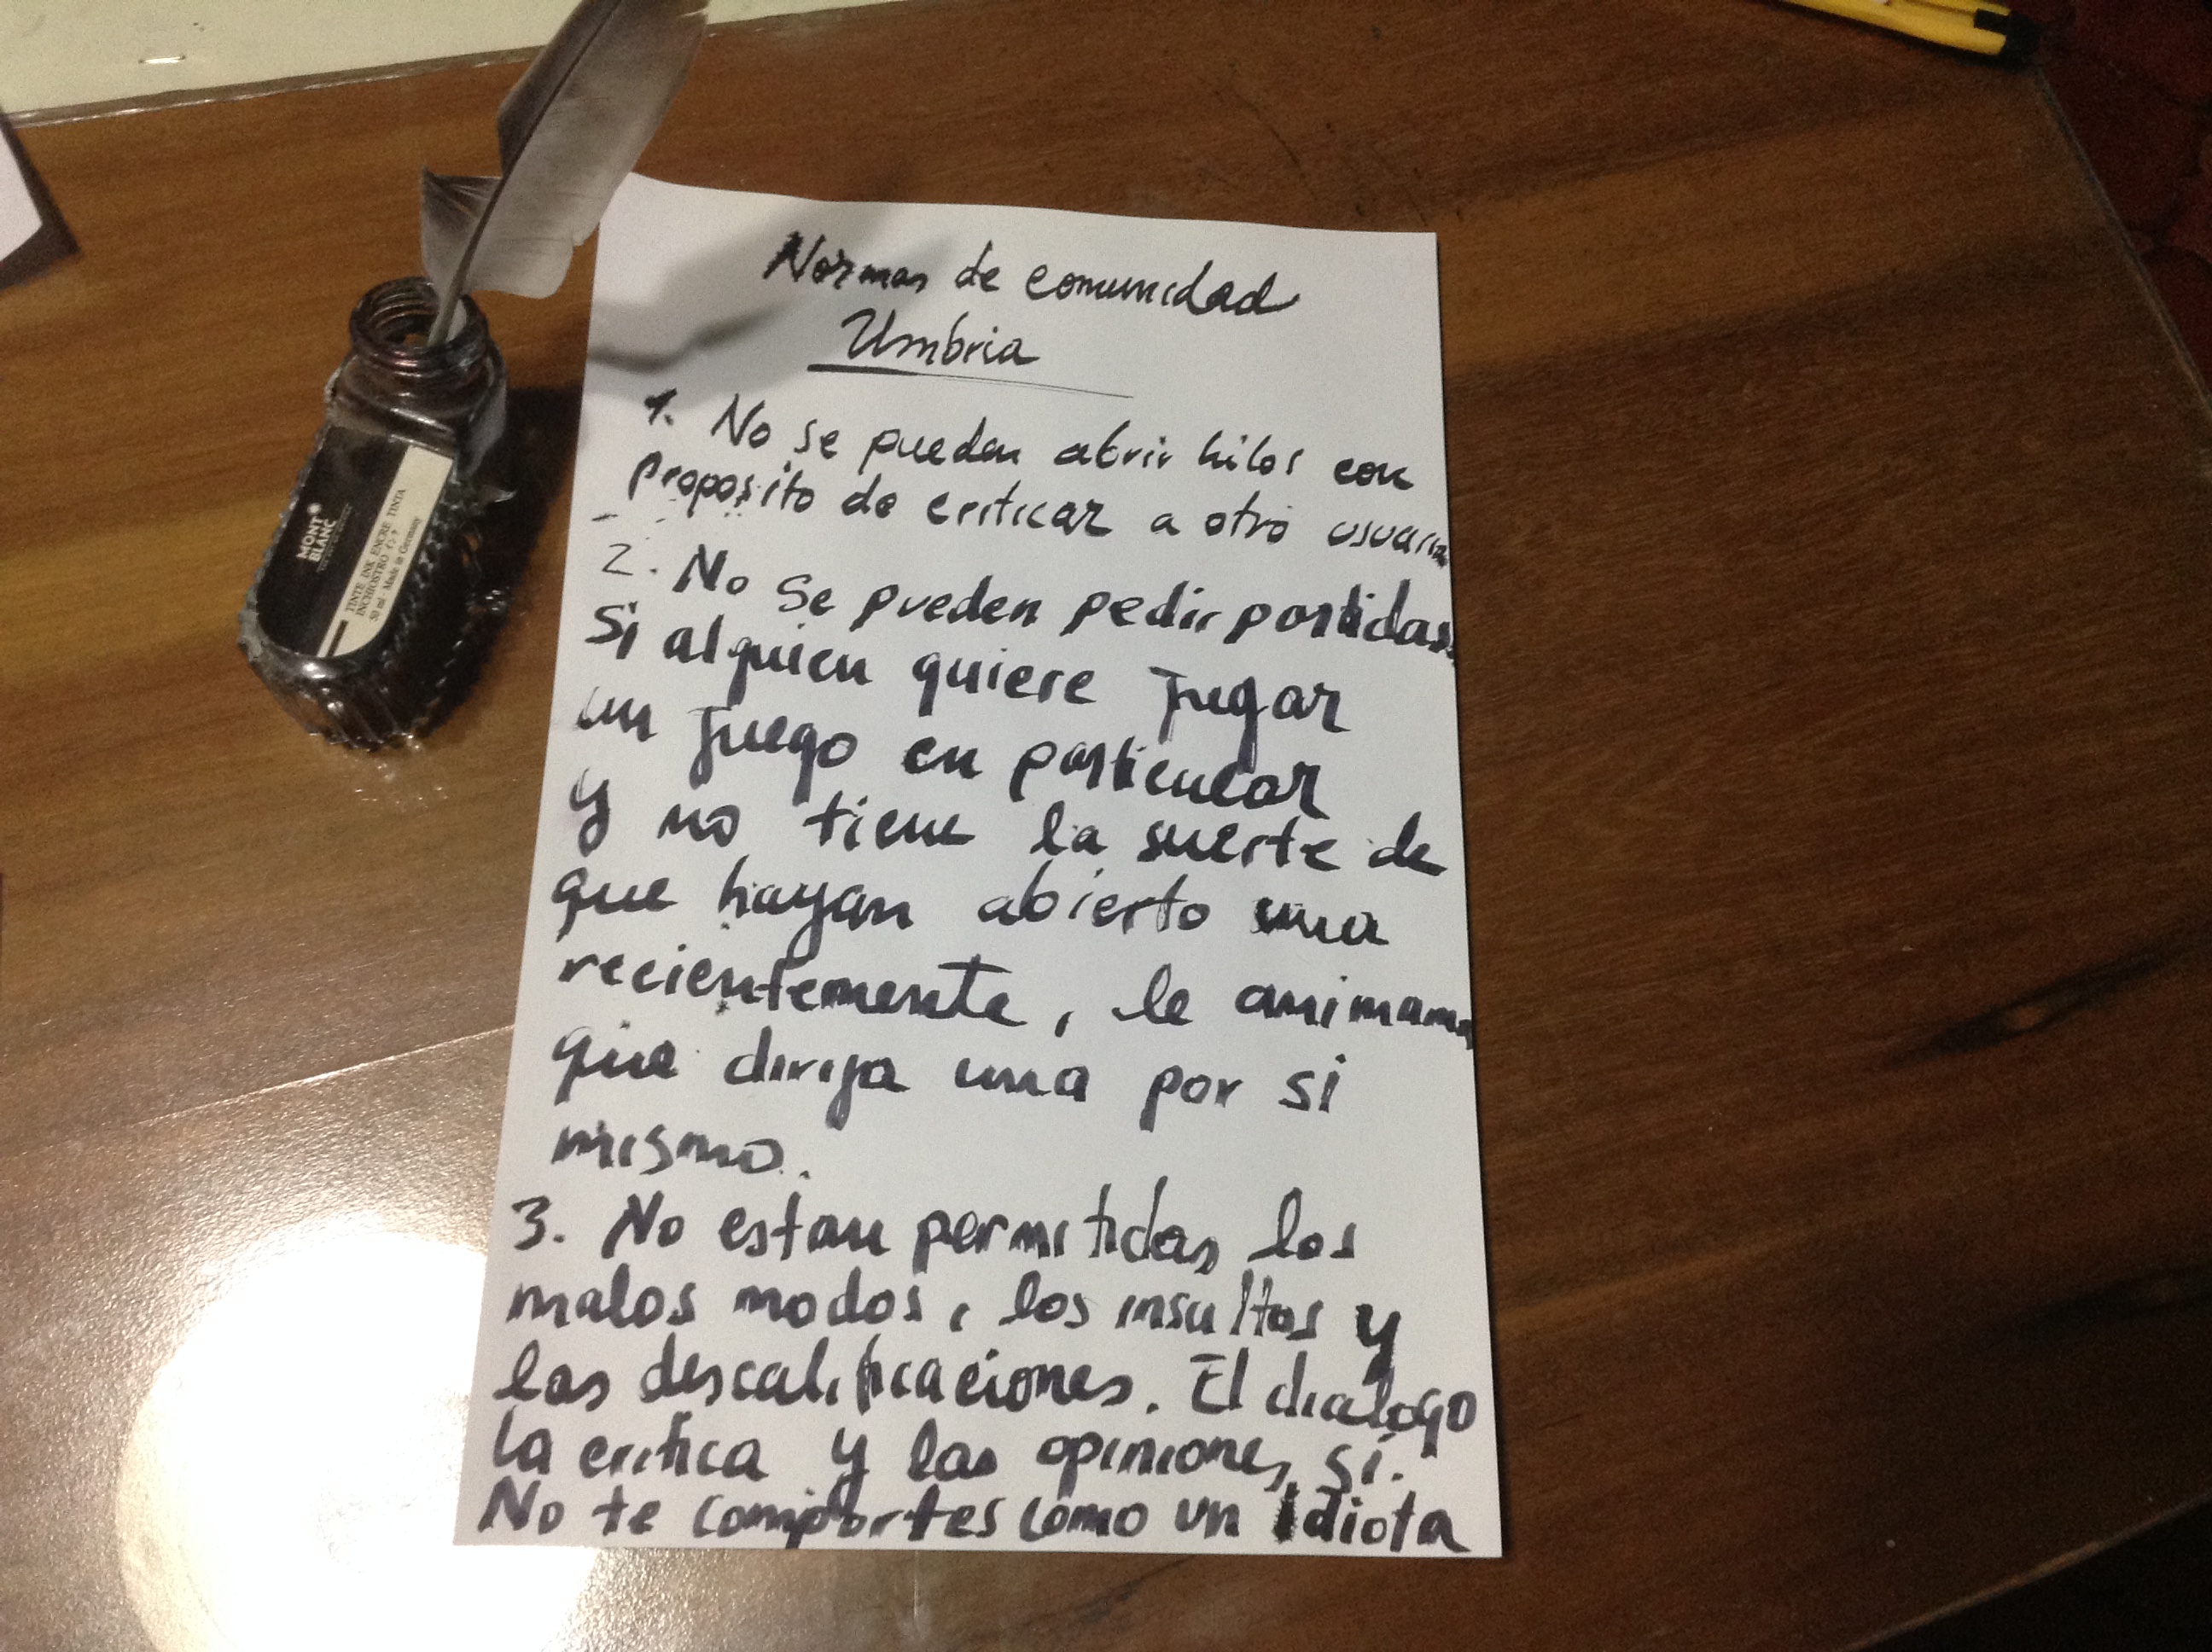 Normas de comunidad
Umbria
1. No se pueden abrir hilos con
proposito de criticar a otro usuario
2. No se pueden pedir partidas.
Si alguien quiere jugar
un juego en particular
y no tiene la suerte de
que hayan abierto una
recientemente, le animamos
que dirija una por si
mismo.
3. No estan permitidas los
malos modos, los insultos y
las descalificaciones. El dialogo
la critica y las opiniones, sí.
No te comportes como un idiota
MONT
BLANC
TINTE INK ENCRE TINTA
INCHIOSTRO
50 ml - Made in Germany